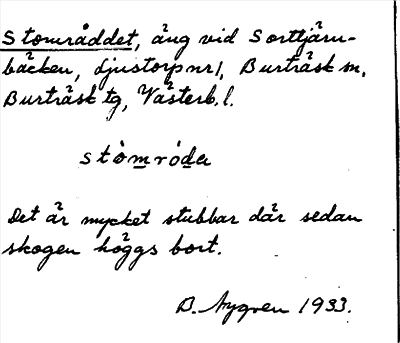 Stområddet, äng vid Sorttjärn-
bäcken, Ljustorp nr 1, Burträsk sn,
Burträsk tg, Västerb. l.
stòmróda
Det är mycket stubbar där sedan
skogen höggs bort.
D. Nygren 1933.